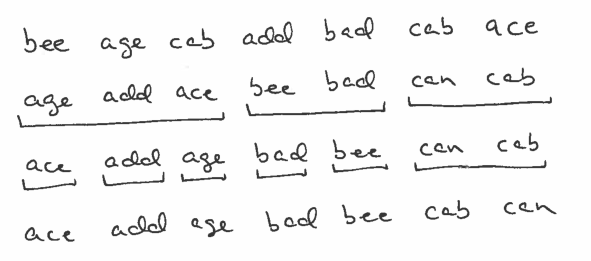 bee age cab add bad cab ace
age add ace bee bad can cab
ace add age bad bee can cab
ace add age bad bee cab can